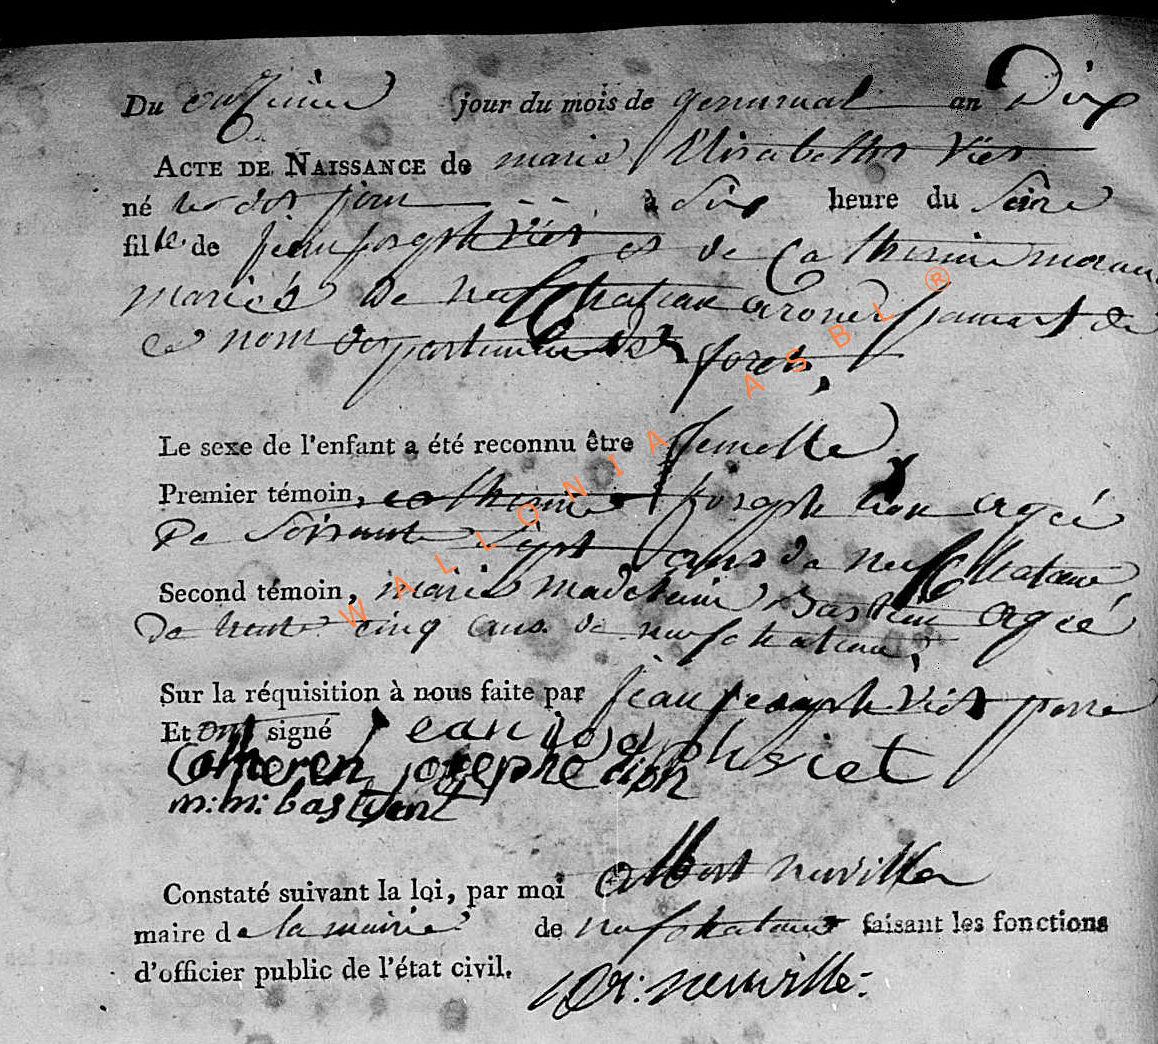 Du onzieme jour du mois de germinal an Dix
ACTE DE NAISSANCE de marie Elisabethe Viet
né le dit jour à Six heure du Soire
fille de jean joseph Viet et de Catherine
mariés de neufchateau arondissement de
ce nom departement de forets,
Le sexe de l'enfant a été reconnu être femelle
Premier témoin, catherine joseph agée
De Soixante Sept ans de neufchateau
Second témoin, marie madeleine Bastien agée
de trente cinq ans de neufchateau,
Sur la réquisition à nous faite par jean joseph Viet pere
Et ont signé jean joseph viet
catheren josephe
m: m: bastient
Constaté suivant la loi, par moi albert neuville
maire de la mairie de neufchateau faisant les fonctions
d'officier public de l'état civil.
neuville
WALLONIA ASBL ®